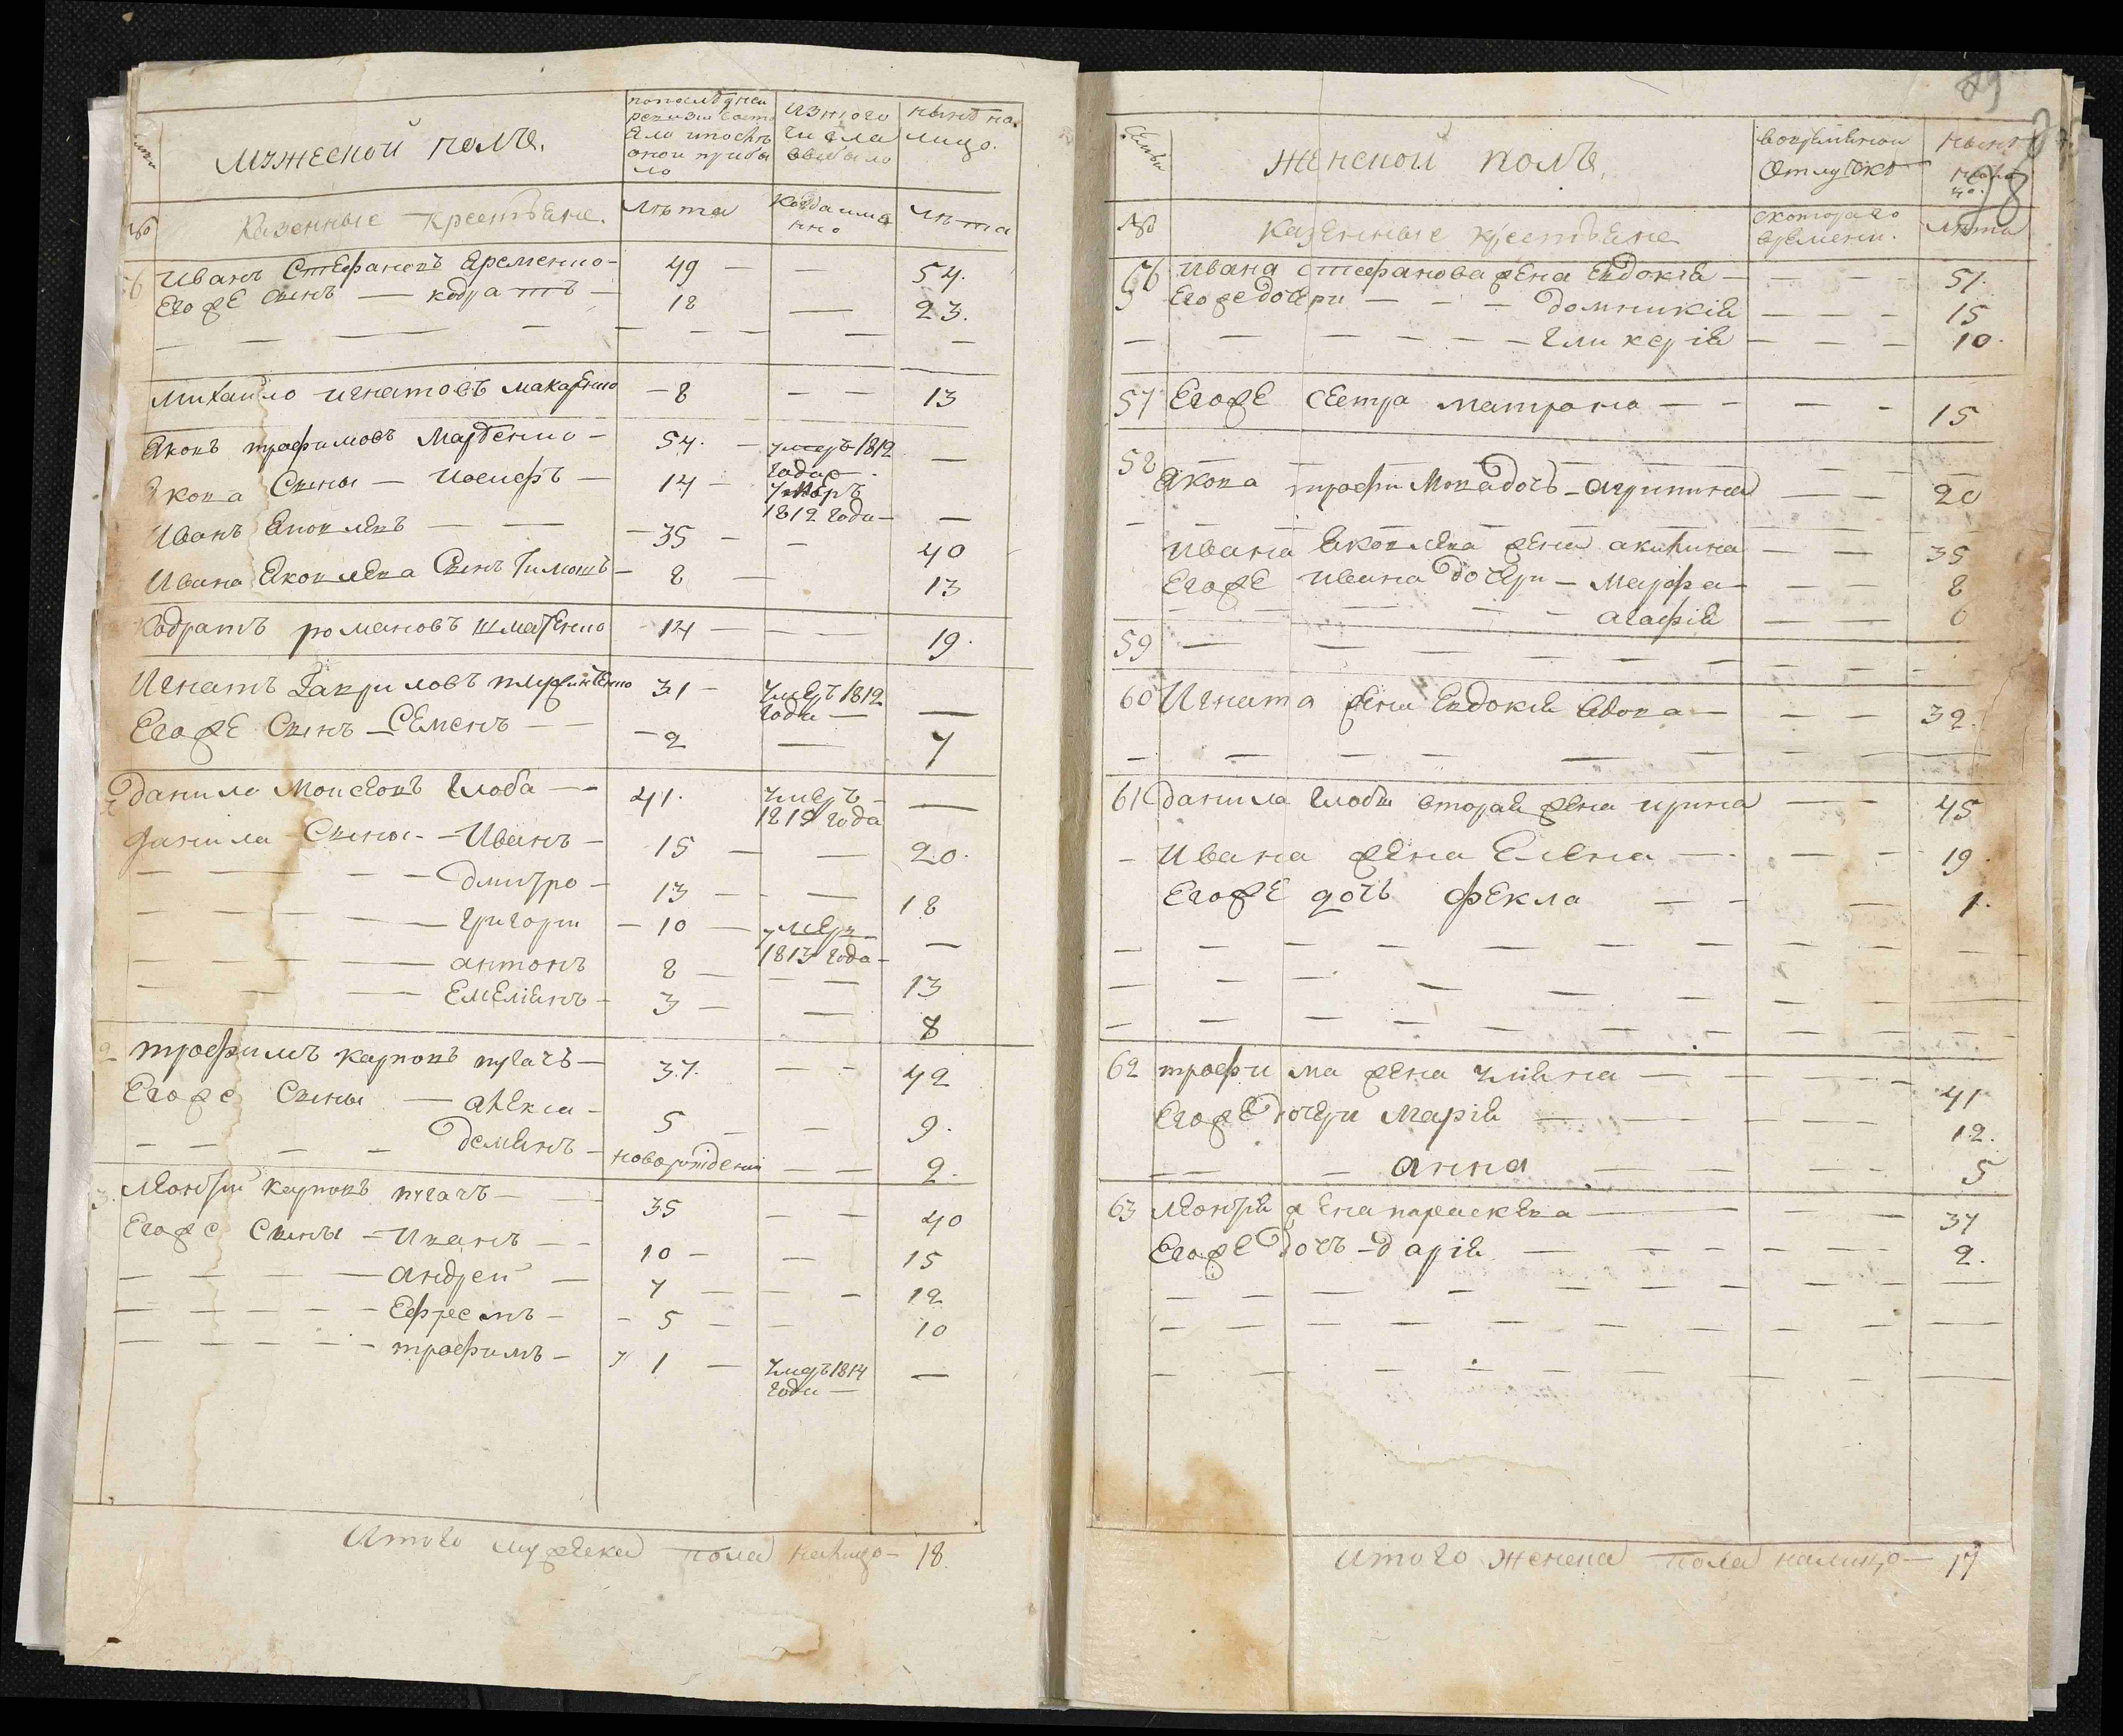 Семьи
мужеской полъ.
по последней ревизии состояло и после оной прибыло
из того числа выбыло
ныне на лицо.
№
Казенные крестьяне.
лета
Когда именно
лета
56 Иванъ Стефановъ Яременко — 49 — — 54.
Его же сынъ — кодратъ — 18 — 23.
Михаило игнатовъ макаренко — 8 — — 13
Яковъ трофимовъ Марченко — 54. — умеръ 1812 года —
Якова Сыны — иосифъ — 14 — умеръ 1812 года —
Иванъ Яковлевъ — — 35 — — 40
Ивана Яковлева Сынъ Тимошъ — 8 — 13
Кодратъ романовъ шматенко — 14 — — 19.
Игнатъ Гавриловъ 31 — умеръ 1812 года —
Его же Сынъ — Семенъ — — 2 — 7
данило Моисеовъ Глоба — 41. умеръ — 1815 года —
данила Сыны — Иванъ — 15 — — 20.
— — — — дмитро — 13 — — 18
— — — — григори — 10 — умеръ 1813 года — —
— — — — антонъ 8 — — — 13
— — — — Емелiянъ — 3 — — 8
2 трофимъ карповъ пугачъ — 37. — — 42
Его же Сыны — алекса — 5 — — 9.
— — — — демянъ — новорожденни — — 2.
3 леонтiй карповъ пугачъ — 35 — — 40
Его же Сыны — Иванъ — — 10 — — 15
— — — — андрей — 7 — — — 12
— — — — Ефремъ — — 5 — — 10
— — — — трофимъ — 1 — умеръ 1814 года — —
Итого мужеска пола налицо — 18.
89
98
Семьи
женской полъ.
во временной отлучке
ныне на лицо.
№
Казенные крестьяне
с котораго времени.
лета
56 ивана стефанова жена Евдокiя — — — — 51.
Его же дочери — — — домникiя — — — 15
— — — — — — гликерiя — — — 10.
57 Его же сестра матрона — — — — 15
58 — — — — — — —
Якова трофимова дочъ — агрипина — — 20
Ивана Яковлева жена акилина — — 35
Его же ивана дочери — марфа — — — 8
— — — — — агафiя — — 6
59 — — — — — — — —
60 Игната жена Евдокiя вдова — — — 32.
— — — — — — — —
61 данила Глобы вторая жена ирина — — 45
— Ивана жена Елена — — — — 19.
Его же дочъ фекла — — — 1.
62 трофима жена улiяна — — — — — 41
Его же дочери Марiя — — — — — 12.
— — — анна — — — — 5
63 леонтiя жена параскева — — — — 37
Его же дочъ — дарiя — — — — — 2.
— — — — — — — —
— — — — — — — —
— — — — — — — —
Итого женска пола налицо — 17